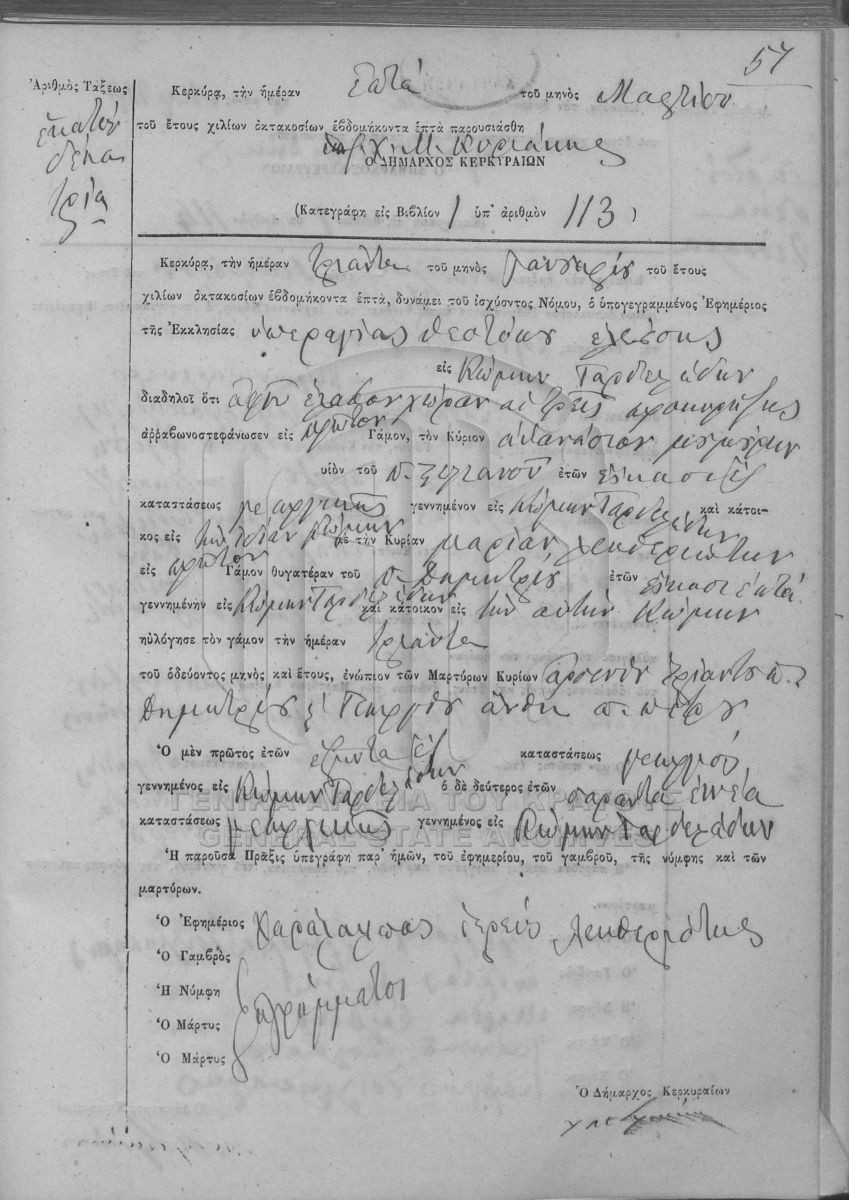 57
Ἀριθμὸς Τάξεως
ἑκατόν
δέκα
τρία
Κερκύρᾳ, τὴν ἡμέραν ἑπτά τοῦ μηνὸς Μαρτίου
τοῦ ἔτους χιλίων ὀκτακοσίων ἑβδομήκοντα ἑπτὰ παρουσιάσθη
Κυριάκης
Ο ΔΗΜΑΡΧΟΣ ΚΕΡΚΥΡΑΙΩΝ
(Κατεγράφη εἰς Βιβλίον 1 ὑπ' ἀριθμὸν 113)
Κερκύρᾳ, τὴν ἡμέραν τριάντα τοῦ μηνὸς Ιανουαρίου τοῦ ἔτους
χιλίων ὀκτακοσίων ἑβδομήκοντα ἑπτά, δυνάμει τοῦ ἰσχύοντος Νόμου, ὁ ὑπογεγραμμένος Ἐφημέριος
τῆς Ἐκκλησίας ὑπεραγίας θεοτόκου ελεούσης
εἰς Κώμην Γαρδελάδων
διαδηλοῖ ὅτι αφού έλαβον χώραν αι τρεις προκηρύξεις
ἀρραβωνοστεφάνωσεν εἰς πρώτον Γάμον, τὸν Κύριον αθανάσιον
υἱὸν τοῦ π. Στεφανοῦ ἐτῶν είκοσι έξ
καταστάσεως γεωργικής γεννημένον εἰς Κώμην Γαρδελάδων καὶ κάτοι-
κος εἰς την ιδίαν Κώμην μὲ τὴν Κυρίαν Μαρίαν Λευθεριώτην
εἰς πρώτον Γάμον θυγατέραν τοῦ π. Δημητρίου ἐτῶν είκοσι επτά
γεννημένην εἰς Κώμην Γαρδελάδων καὶ κάτοικον εἰς την αυτήν Κώμην
ηὐλόγησε τὸν γάμον τὴν ἡμέραν τριάντα
τοῦ ὁδεύοντος μηνὸς καὶ ἔτους, ἐνώπιον τῶν Μαρτύρων Κυρίων π.
Δημητρίου Γεωργίου άνθη π. πέτρου
Ὁ μὲν πρῶτος ἐτῶν εξήντα έξ καταστάσεως γεωργικής
γεννημένος εἰς Κώμην Γαρδελάδων ὁ δὲ δεύτερος ἐτῶν σαράντα εννέα
καταστάσεως γεωργικής γεννημένος εἰς Κώμην Γαρδελάδων
Ἡ παροῦσα Πρᾶξις ὑπεγράφη παρ' ἡμῶν, τοῦ ἐφημερίου, τοῦ γαμβροῦ, τῆς νύμφης καὶ τῶν
μαρτύρων.
Ὁ Ἐφημέριος Χαράλαμπος ιερεύς Λευθεριώτης
Ὁ Γαμβρὸς
Ἡ Νύμφη αγράμματοι
Ὁ Μάρτυς
Ὁ Μάρτυς
Ὁ Δήμαρχος Κερκυραίων
ΓΕΝΙΚΑ ΑΡΧΕΙΑ ΤΟΥ ΚΡΑΤΟΥΣ
GENERAL STATE ARCHIVES